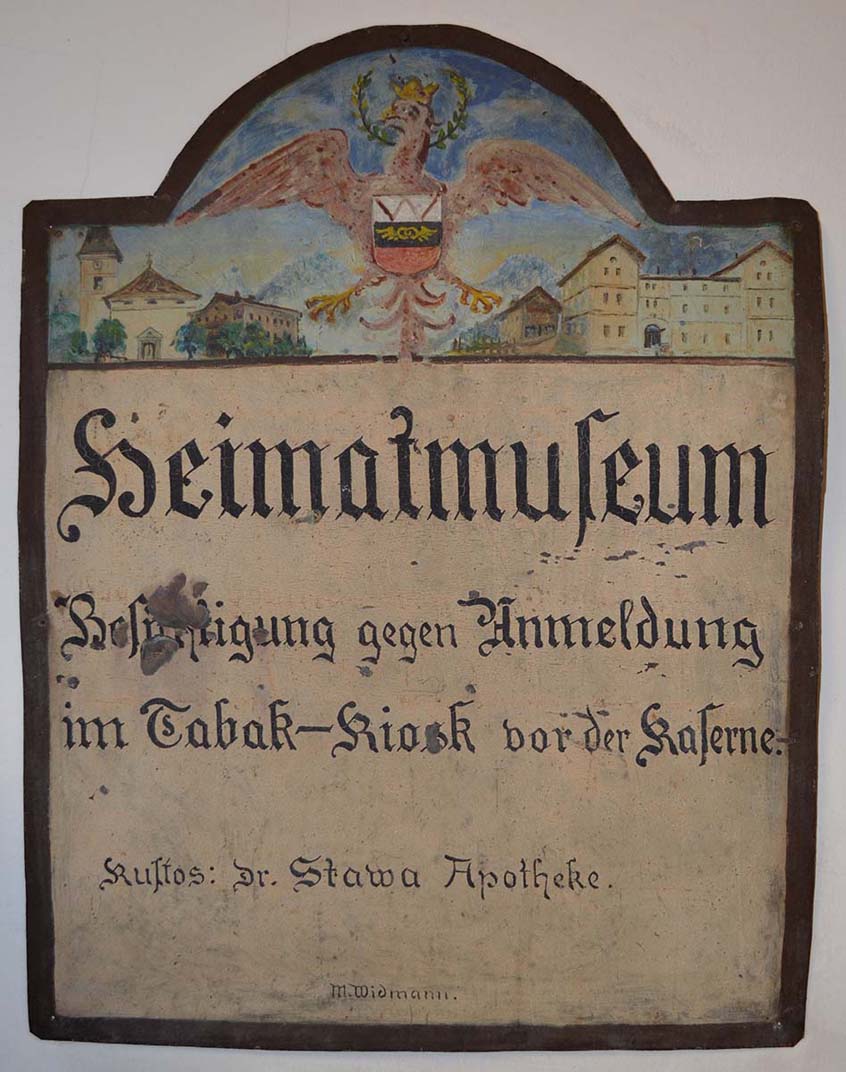 Heimatmuseum
Besichtigung gegen Anmeldung
im Tabak-Kiosk vor der Kaserne.
Kustos: Dr. Stawa Apotheke.
M. Widmann.